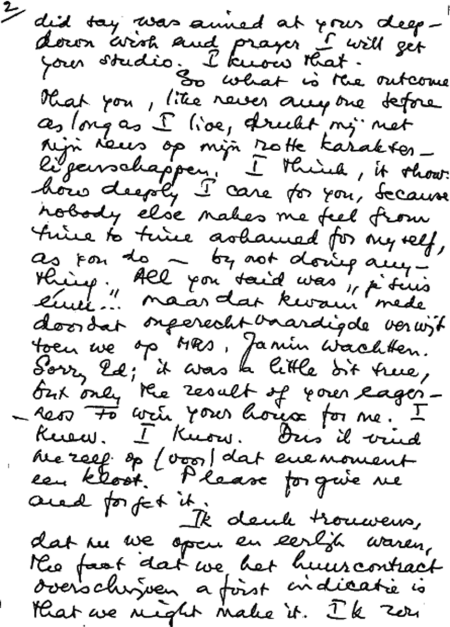 2
did say was aimed at your deep-
down wish and prayer I will get
your studio. I know that.
So what is the outcome
that you, like never anyone before
as long as I live, drukt mij met
mijn neus op mijn rotte karakter-
eigenschappen. I think, it shows
how deeply I care for you, because
nobody else makes me feel from
time to time ashamed for myself,
as you do – by not doing any-
thing. All you said was „je suis
ému"... maar dat kwam mede
doordat ongerechtvaardigde verwijt
toen we op Mrs. Jamin wachtten.
Sorry Ed; it was a little bit true,
but only the result of your eager-
ness to win your house for me. I
knew. I know. Dus ik vind
me zelf op (voor) dat ene moment
een kloot. Please forgive me
and forget it.
Ik denk trouwens,
dat nu we open en eerlijk waren,
the fact dat we het huurcontract
overschrijven a first indicatie is
that we might make it. Ik zou